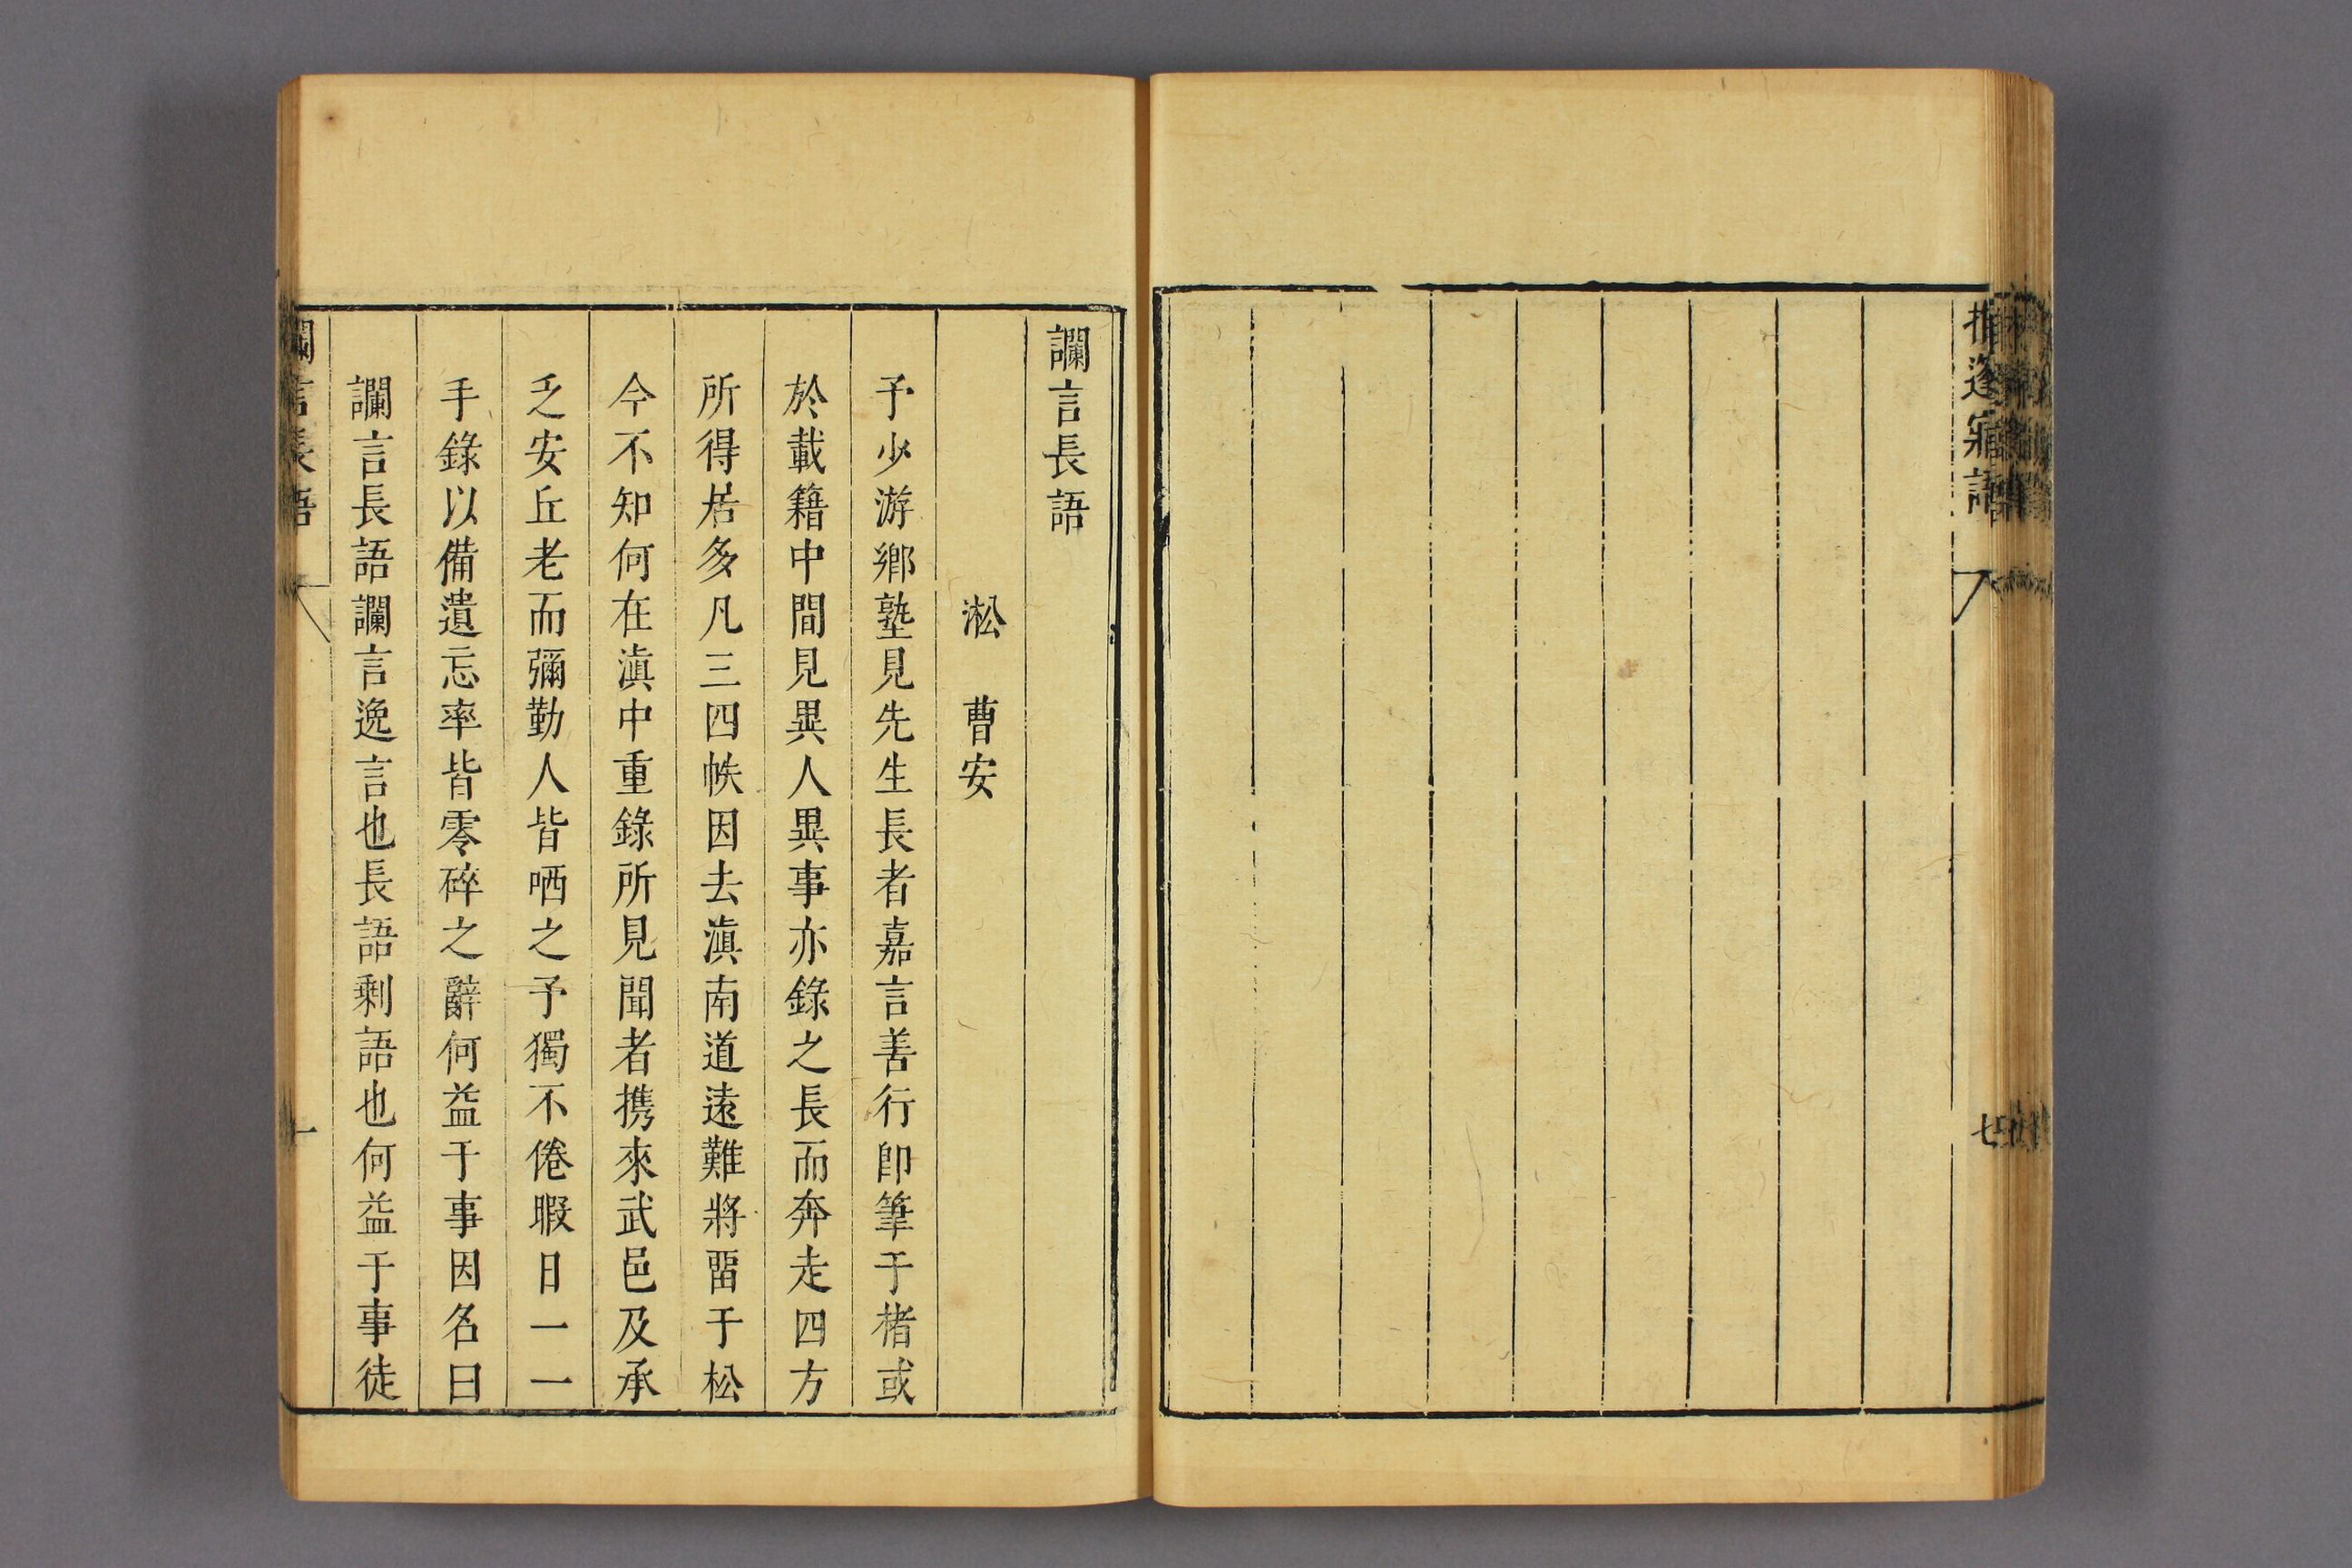 逢寤語
七
讕言長語
淞　曹安
予少游鄉塾見先生長者嘉言善行卽筆于楮或
於載籍中間見異人異事亦錄之長而奔走四方
所得居多凡三四帙因去滇南道遠難將畱于松
今不知何在滇中重錄所見聞者携來武邑及承
乏安丘老而彌勤人皆哂之予獨不倦暇日一一
手錄以備遺忘率皆零碎之辭何益于事因名曰
讕言長語讕言逸言也長語剩語也何益于事徒
讕言長語
一